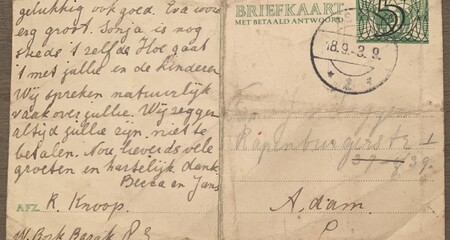 gelukkig ook goed. Eva word
erg groot. Sonja is nog
steeds 't zelfde Hoe gaat
't met jullie en de kinderen
Wij spreken natuurlijk
vaak over jullie. Wij zeggen
altijd jullie zijn niet te
betalen. Nou lieverds vele
groeten en hartelijk dank
Becca en Jans
AFZ. R. Knoop.
W. Bork Barak
BRIEFKAART
MET BETAALD ANTWOORD
5
18.9.-3.9.
Rapenburgerstr
37 39
A.dam.